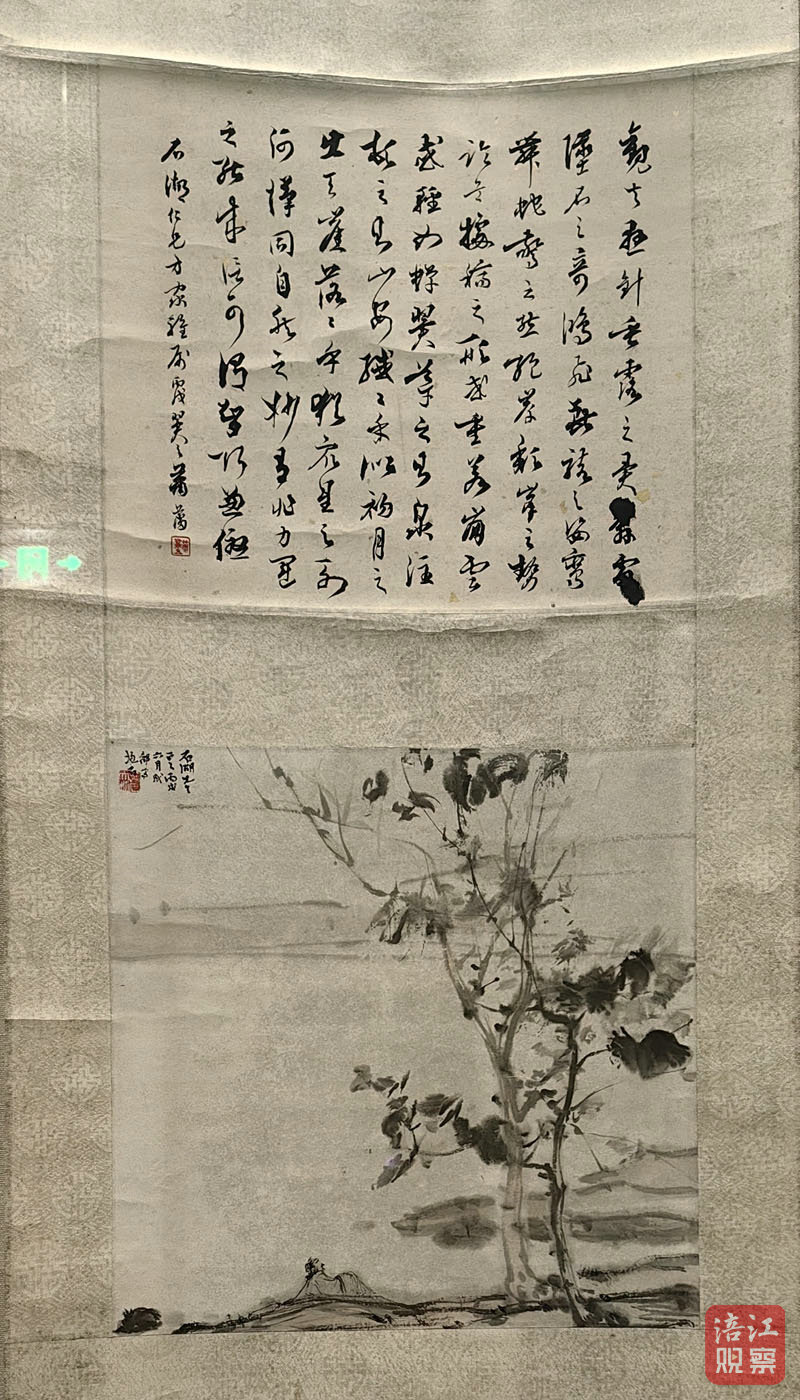 觀夫懸針垂露之異奔雷
墜石之奇鴻飛獸駭之資鸞
舞蛇驚之態絕岸頹峯之勢
臨危據槁之形或重若崩雲
或輕如蟬翼導之則泉注
頓之則山安纖纖乎似初月之
出天崖落落乎猶眾星之列
河漢同自然之妙有非力運
之能成信可謂智巧兼優
石湖仁兄方家雅屬
石湖先生
正之丙戌
六月
涪江
观察